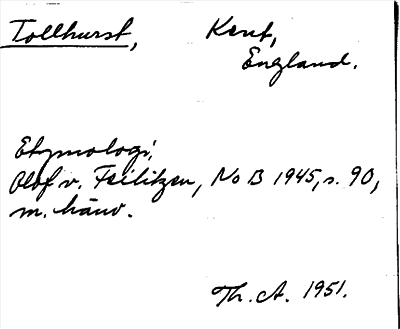 Tollhurst, Kent,
England.
Etymologi,
Olof v. Feilitzen, No B 1945, s. 90,
m. hänv.
Th. A. 1951.